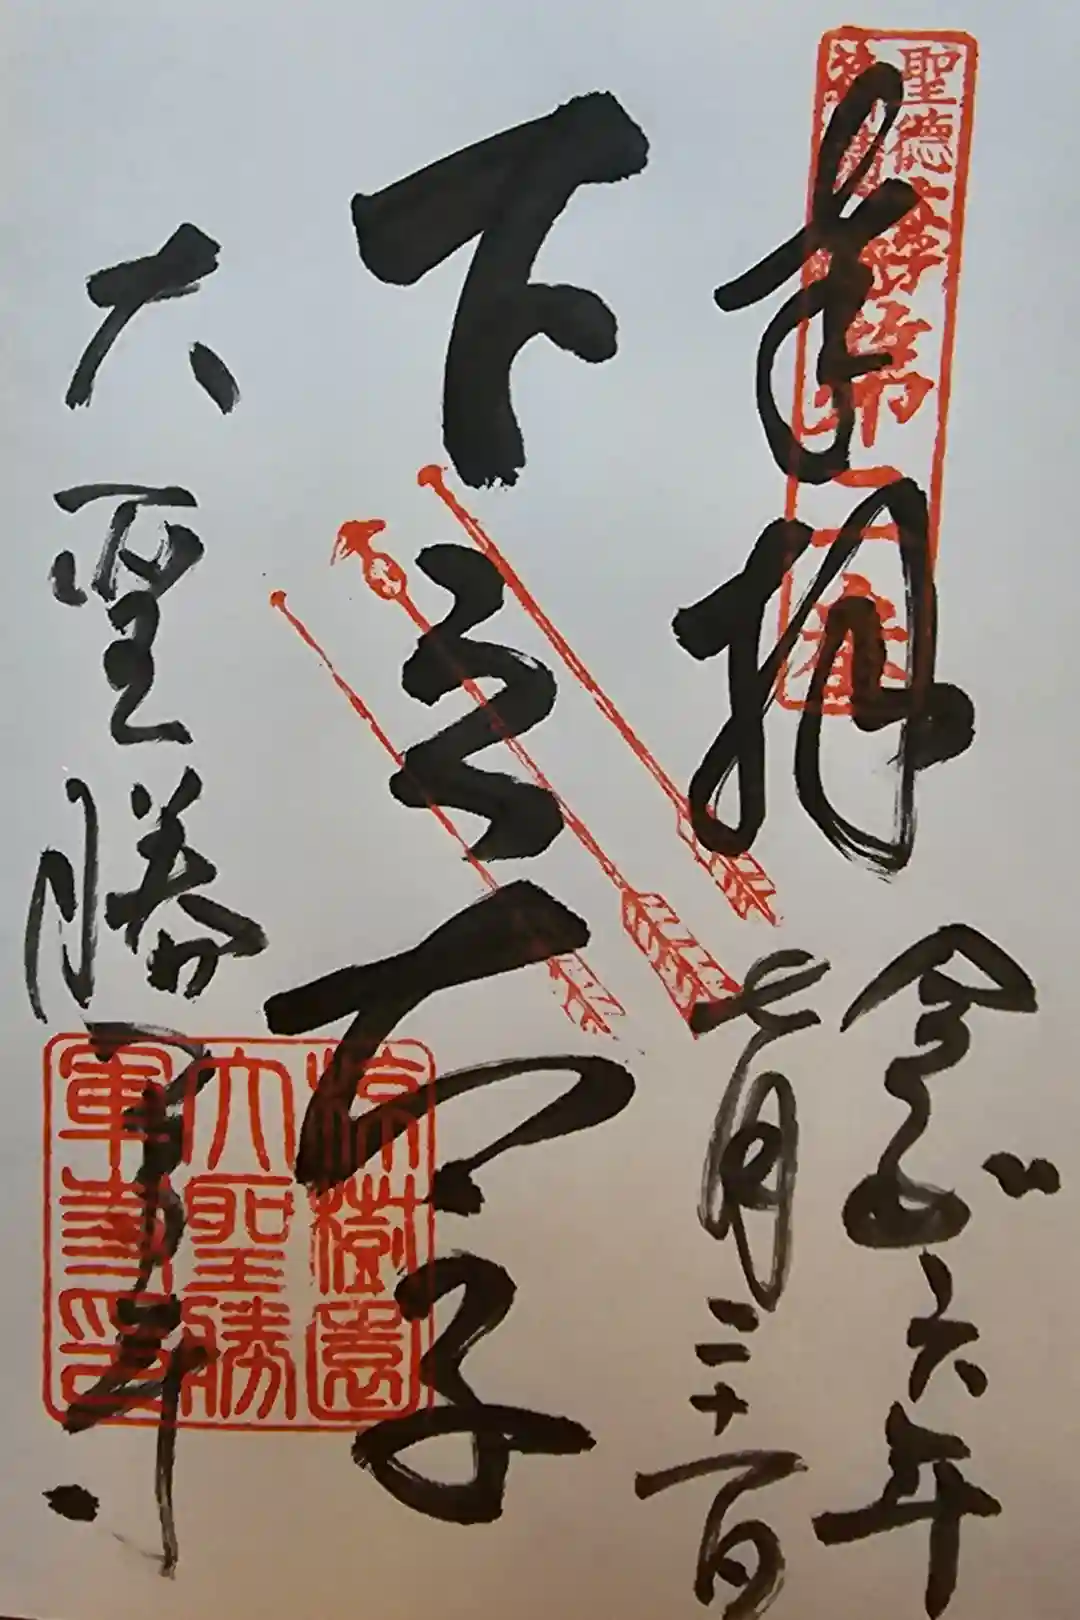 聖德太子
第二番
奉拝
令和六年
七月二十一日
下之太子
大聖勝軍寺
椋樹園
大聖勝
軍寺印